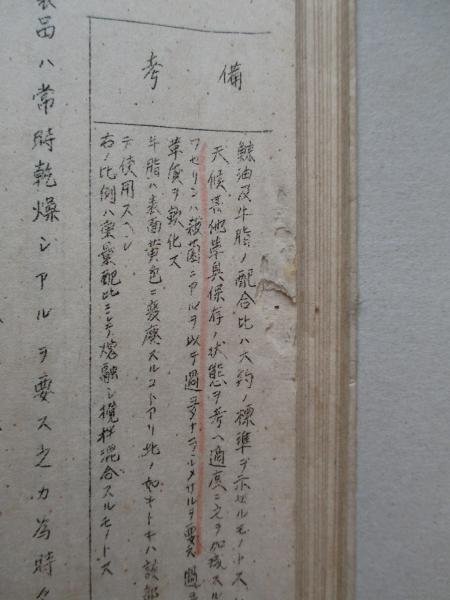 備考
鯨油及牛脂ノ配合比ハ大約ノ標準ヲ示セルモノトス
天候其他革具保存ノ状態ヲ考ヘ適度ニ之ヲ加減スル
ワセリンハ殺菌ニアルヲ以テ過多ナラシメサルヲ要ス過
革質ヲ軟化ス
牛脂ハ表面黄色ニ変廃スルコトアリ此ノ如キトキハ該部
テ使用スヘシ
右ノ比例ハ重量配比ニシテ熔融シ攪拌混合スルモノトス
製品ハ常時乾燥シアルヲ要ス之カ為時々